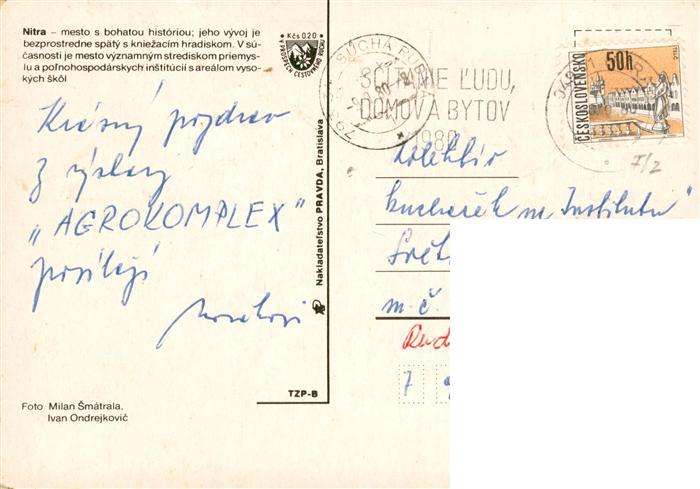 Nitra – mesto s bohatou históriou; jeho vývoj je
bezprostredne spätý s kniežacím hradiskom. V sú-
časnosti je mesto významným strediskom priemys-
lu a poľnohospodárskych inštitúcií s areálom vyso-
kých škôl
Kčs 0,20
V PROSPECH CESTOVNÉHO RUCHU
Krásný pozdrav
z výstavy
„AGROKOMPLEX"
posílají
Foto Milan Šmátrala,
Ivan Ondrejkovič
Nakladateľstvo PRAVDA, Bratislava
TZP-B
SUCHÁ
SČÍTANIE ĽUDU,
DOMOV A BYTOV
1980
ČESKOSLOVENSKO
50h
I/2
kuchařek na Institutu
Svět
m.č.
Rud
7